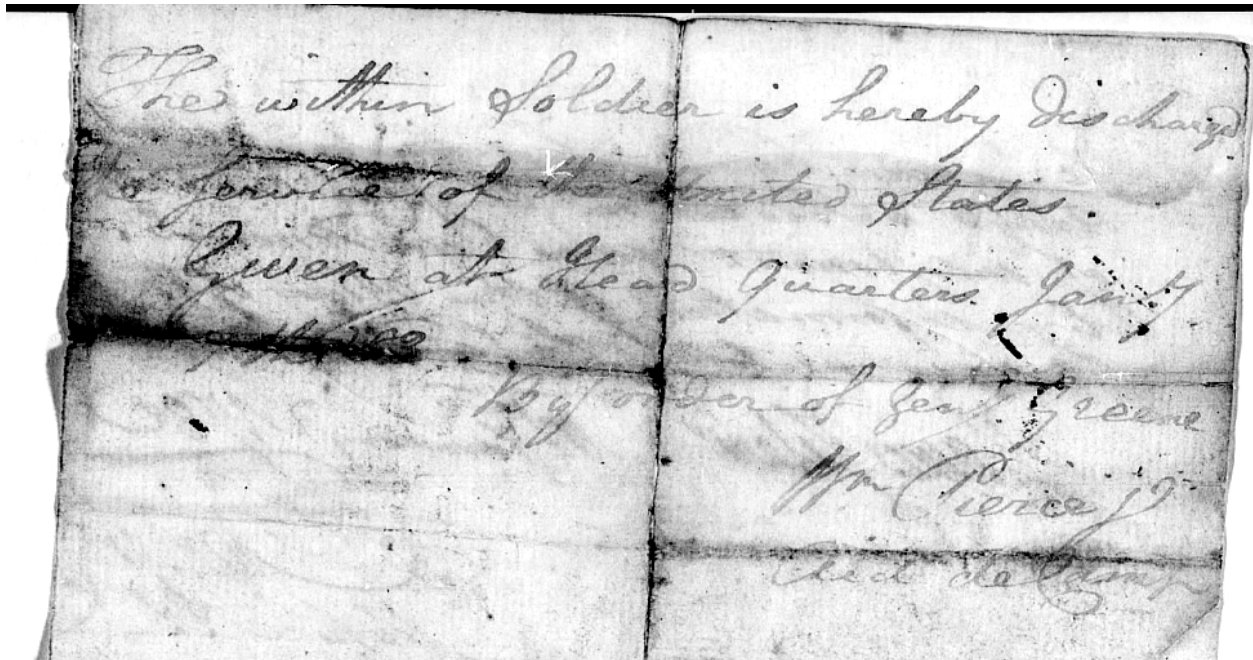 The within Soldier is hereby discharged
the Service of the United States.
Given at Head Quarters Jany
By order of Genl. Greene
Wm Pierce Jr
Aid de Camp